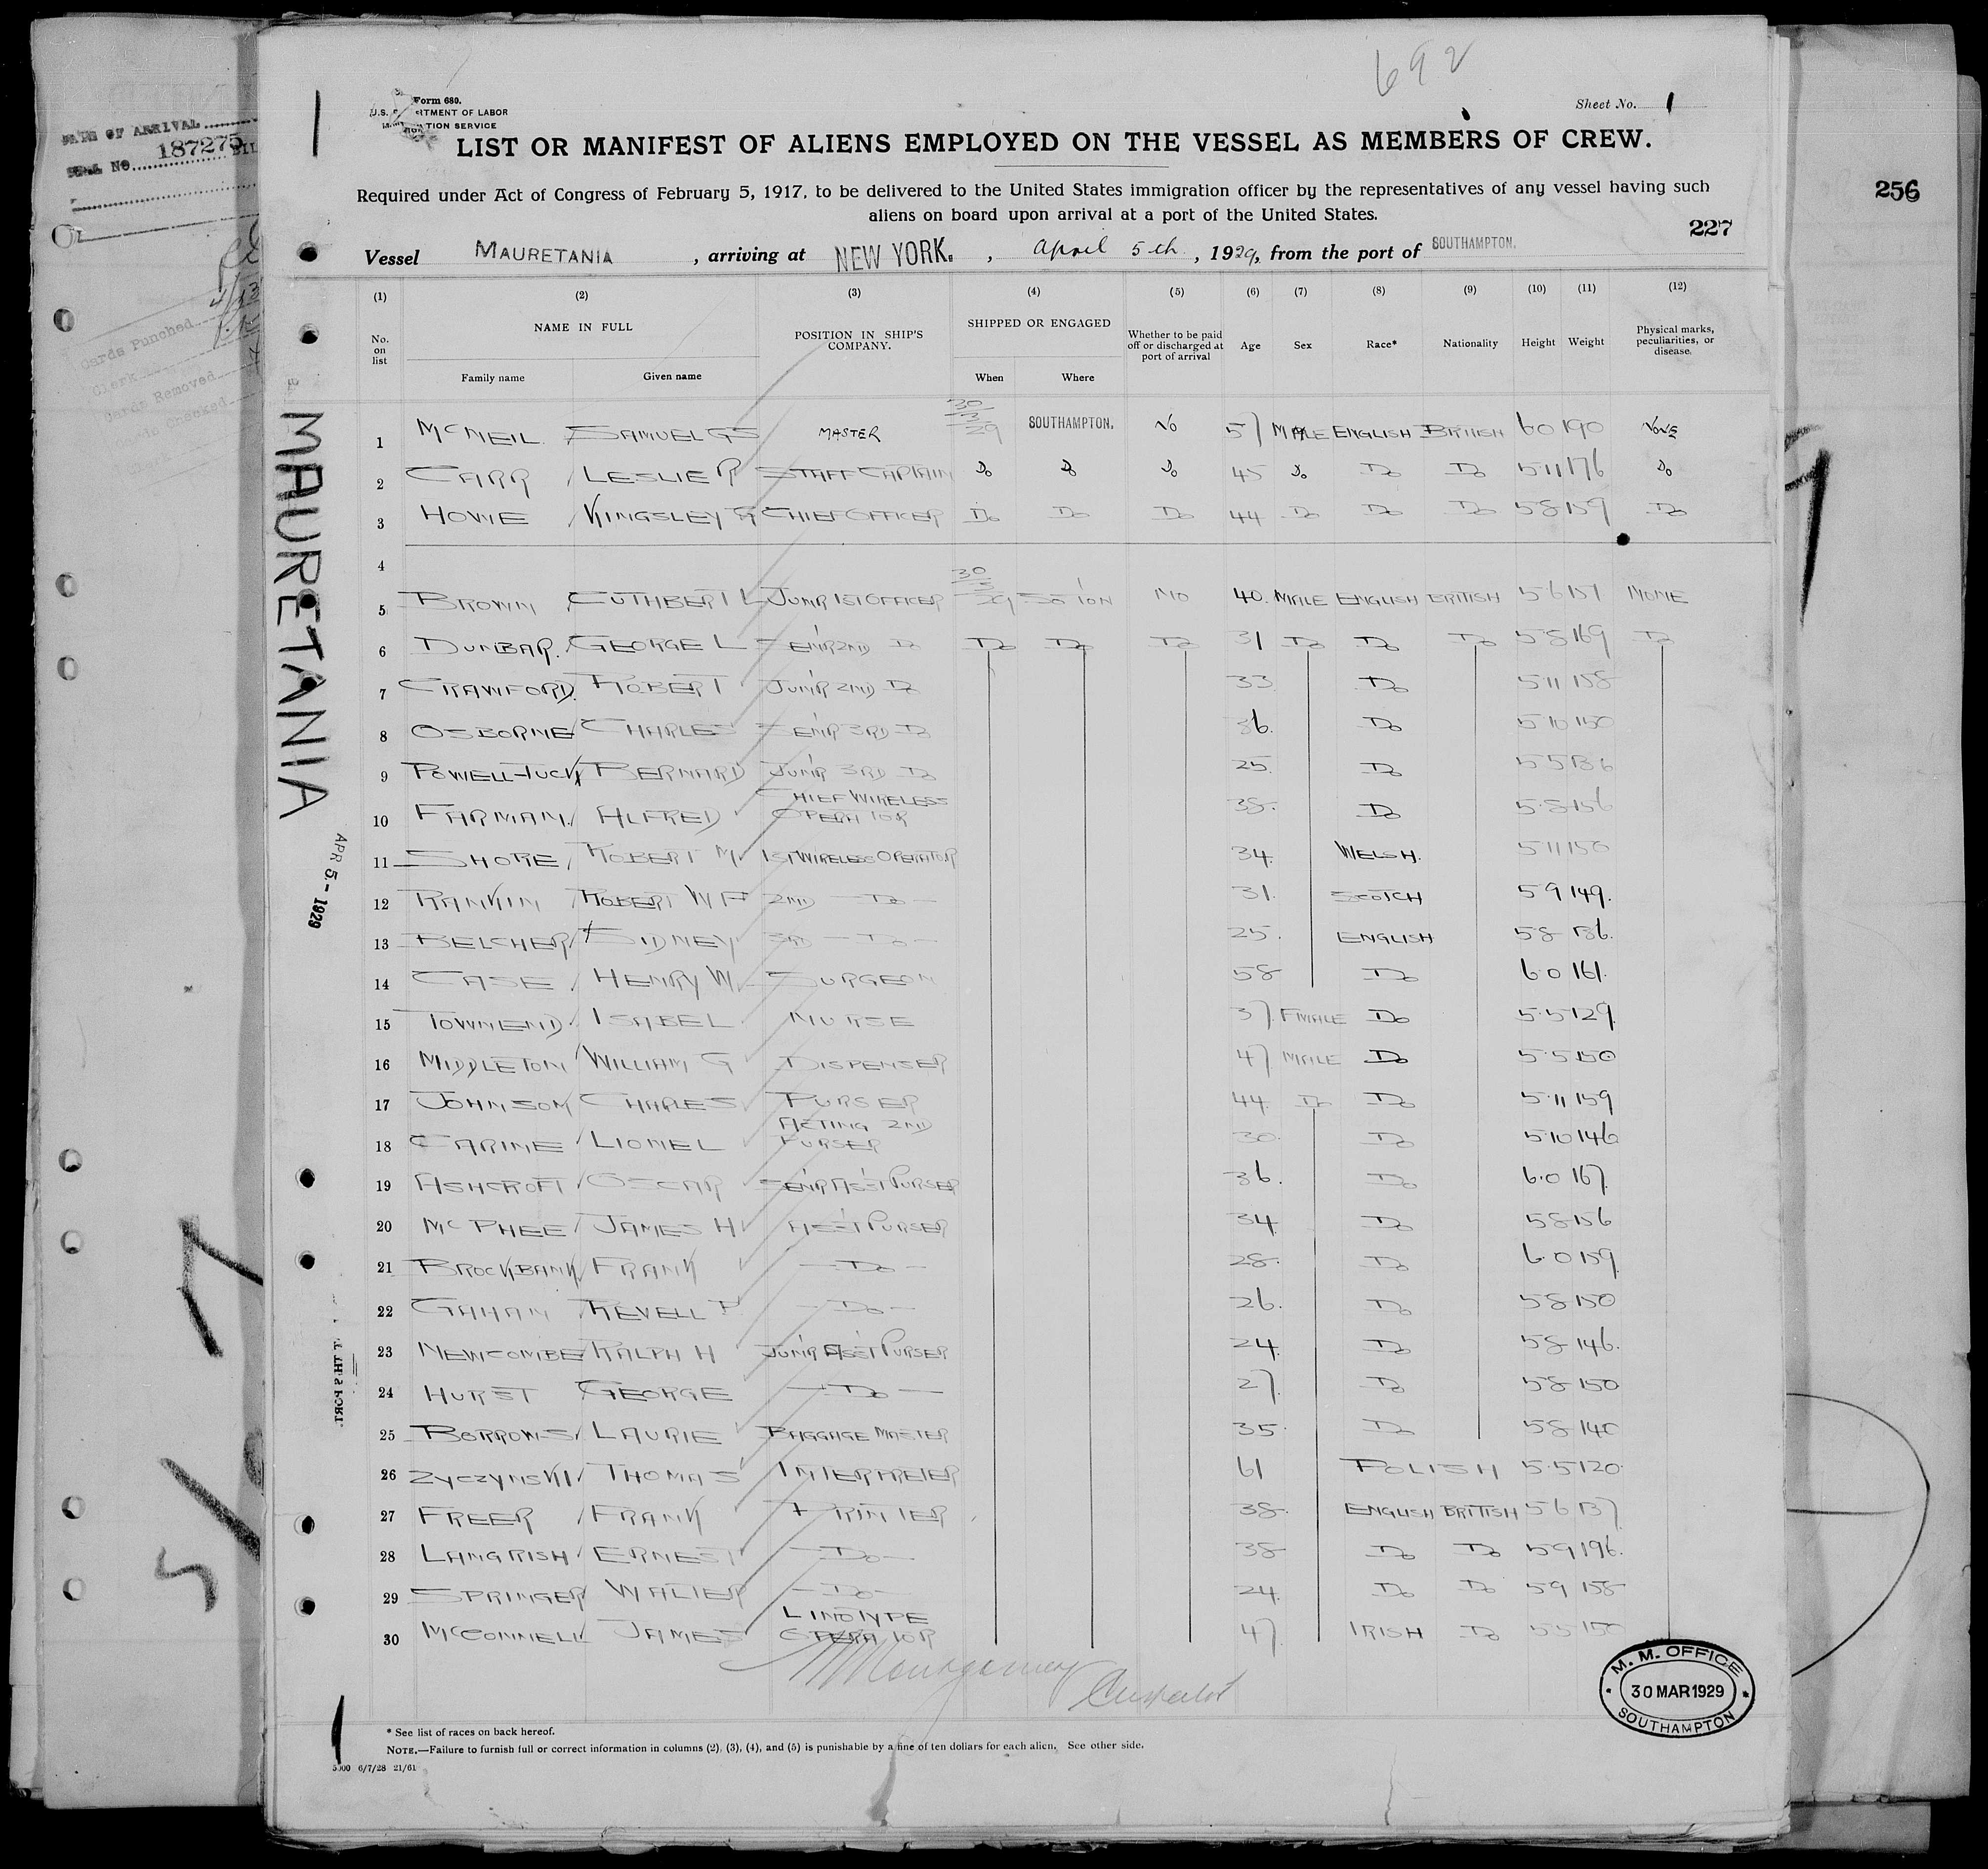 692
Form 680.
Sheet No. 1
U.S. DEPARTMENT OF LABOR
IMMIGRATION SERVICE
DATE OF ARRIVAL
SERIAL No. 187275
LIST OR MANIFEST OF ALIENS EMPLOYED ON THE VESSEL AS MEMBERS OF CREW.
Required under Act of Congress of February 5, 1917, to be delivered to the United States immigration officer by the representatives of any vessel having such
aliens on board upon arrival at a port of the United States.
256
227
Vessel MAURETANIA, arriving at NEW YORK., April 5th, 1929, from the port of SOUTHAMPTON.
(1) (2) (3) (4) (5) (6) (7) (8) (9) (10) (11) (12)
No. on list NAME IN FULL POSITION IN SHIP'S COMPANY. SHIPPED OR ENGAGED Whether to be paid off or discharged at port of arrival Age Sex Race* Nationality Height Weight Physical marks, peculiarities, or disease.
Family name Given name When Where
Cards Punched
Clerk
Cards Removed
1 McNEIL SAMUEL GS MASTER 30/3/29 SOUTHAMPTON. No 57 MALE ENGLISH BRITISH 6 0 190 NONE
2 CARR LESLIE R STAFF CAPTAIN Do Do Do 45 Do Do Do 5 11 176 Do
3 HOWE KINGSLEY CHIEF OFFICER Do Do Do 44 Do Do Do 5 8 159 Do
4
5 BROWN CUTHBERT L JUN'R 1ST OFFICER 30/3/29 SO'TON NO 40. MALE ENGLISH BRITISH 5 6 151 NONE
6 DUNBAR. GEORGE L SEN'R 2ND Do Do Do Do 31 Do Do Do 5 8 169 Do
7 CRAWFORD ROBERT JUN'R 2ND Do 33 Do 5 11 158
8 OSBORNE CHARLES SEN'R 3RD Do 36. Do 5 10 150
9 POWELL-TUCK BERNARD JUN'R 3RD Do 25. Do 5 5 136
10 FARMAN. ALFRED CHIEF WIRELESS OPERATOR 38. Do 5.8 156
11 SHORE ROBERT M. 1ST WIRELESS OPERATOR 34 WELSH. 5 11 150
12 RANKIN ROBERT W F 2ND — Do — 31. SCOTCH 5 9 149.
13 BELCHER SIDNEY 3RD — Do — 25. ENGLISH 5 8 136.
14 CASE HENRY W. SURGEON 58 Do 6.0 161.
15 TOWNEND ISABEL NURSE 37 FMALE Do 5.5 129
16 MIDDLETON WILLIAM G DISPENSER 47 MALE Do 5.5 150
17 JOHNSON CHARLES PURSER 44. Do Do 5.11 159
18 CARINE LIONEL ACTING 2ND PURSER 30. Do 5 10 146
19 ASHCROFT OSCAR SEN'R ASS'T PURSER 36. Do 6.0 167
20 McPHEE JAMES H ASS'T PURSER 34. Do 5 8 156
21 BROCKBANK FRANK — Do — 28. Do 6.0 159
22 GAHAN REVELL P. — Do — 26. Do 5 8 150
23 NEWCOMBE RALPH H JUN'R ASS'T PURSER 24. Do 5 8 146.
24 HURST GEORGE — Do — 27. Do 5 8 150
25 BORROWS LAURIE BAGGAGE MASTER 35 Do 5 8 140
26 ZYCZYNSKI THOMAS INTERPRETER 61 POLISH 5.5 120
27 FREER FRANK PRINTER 38. ENGLISH BRITISH 5 6 137
28 LANGRISH ERNEST — Do — 38 Do Do 5 9 196.
29 SPRINGER WALTER — Do — 24. Do Do 5 9 158
30 McCONNELL JAMES LINOTYPE OPERATOR 47 IRISH Do 5 5 150
Montgomery
MAURETANIA
APR 5 - 1929
M. M. OFFICE
30 MAR 1929
SOUTHAMPTON
* See list of races on back hereof.
NOTE.—Failure to furnish full or correct information in columns (2), (3), (4), and (5) is punishable by a fine of ten dollars for each alien. See other side.
5000 6/7/28 21/61